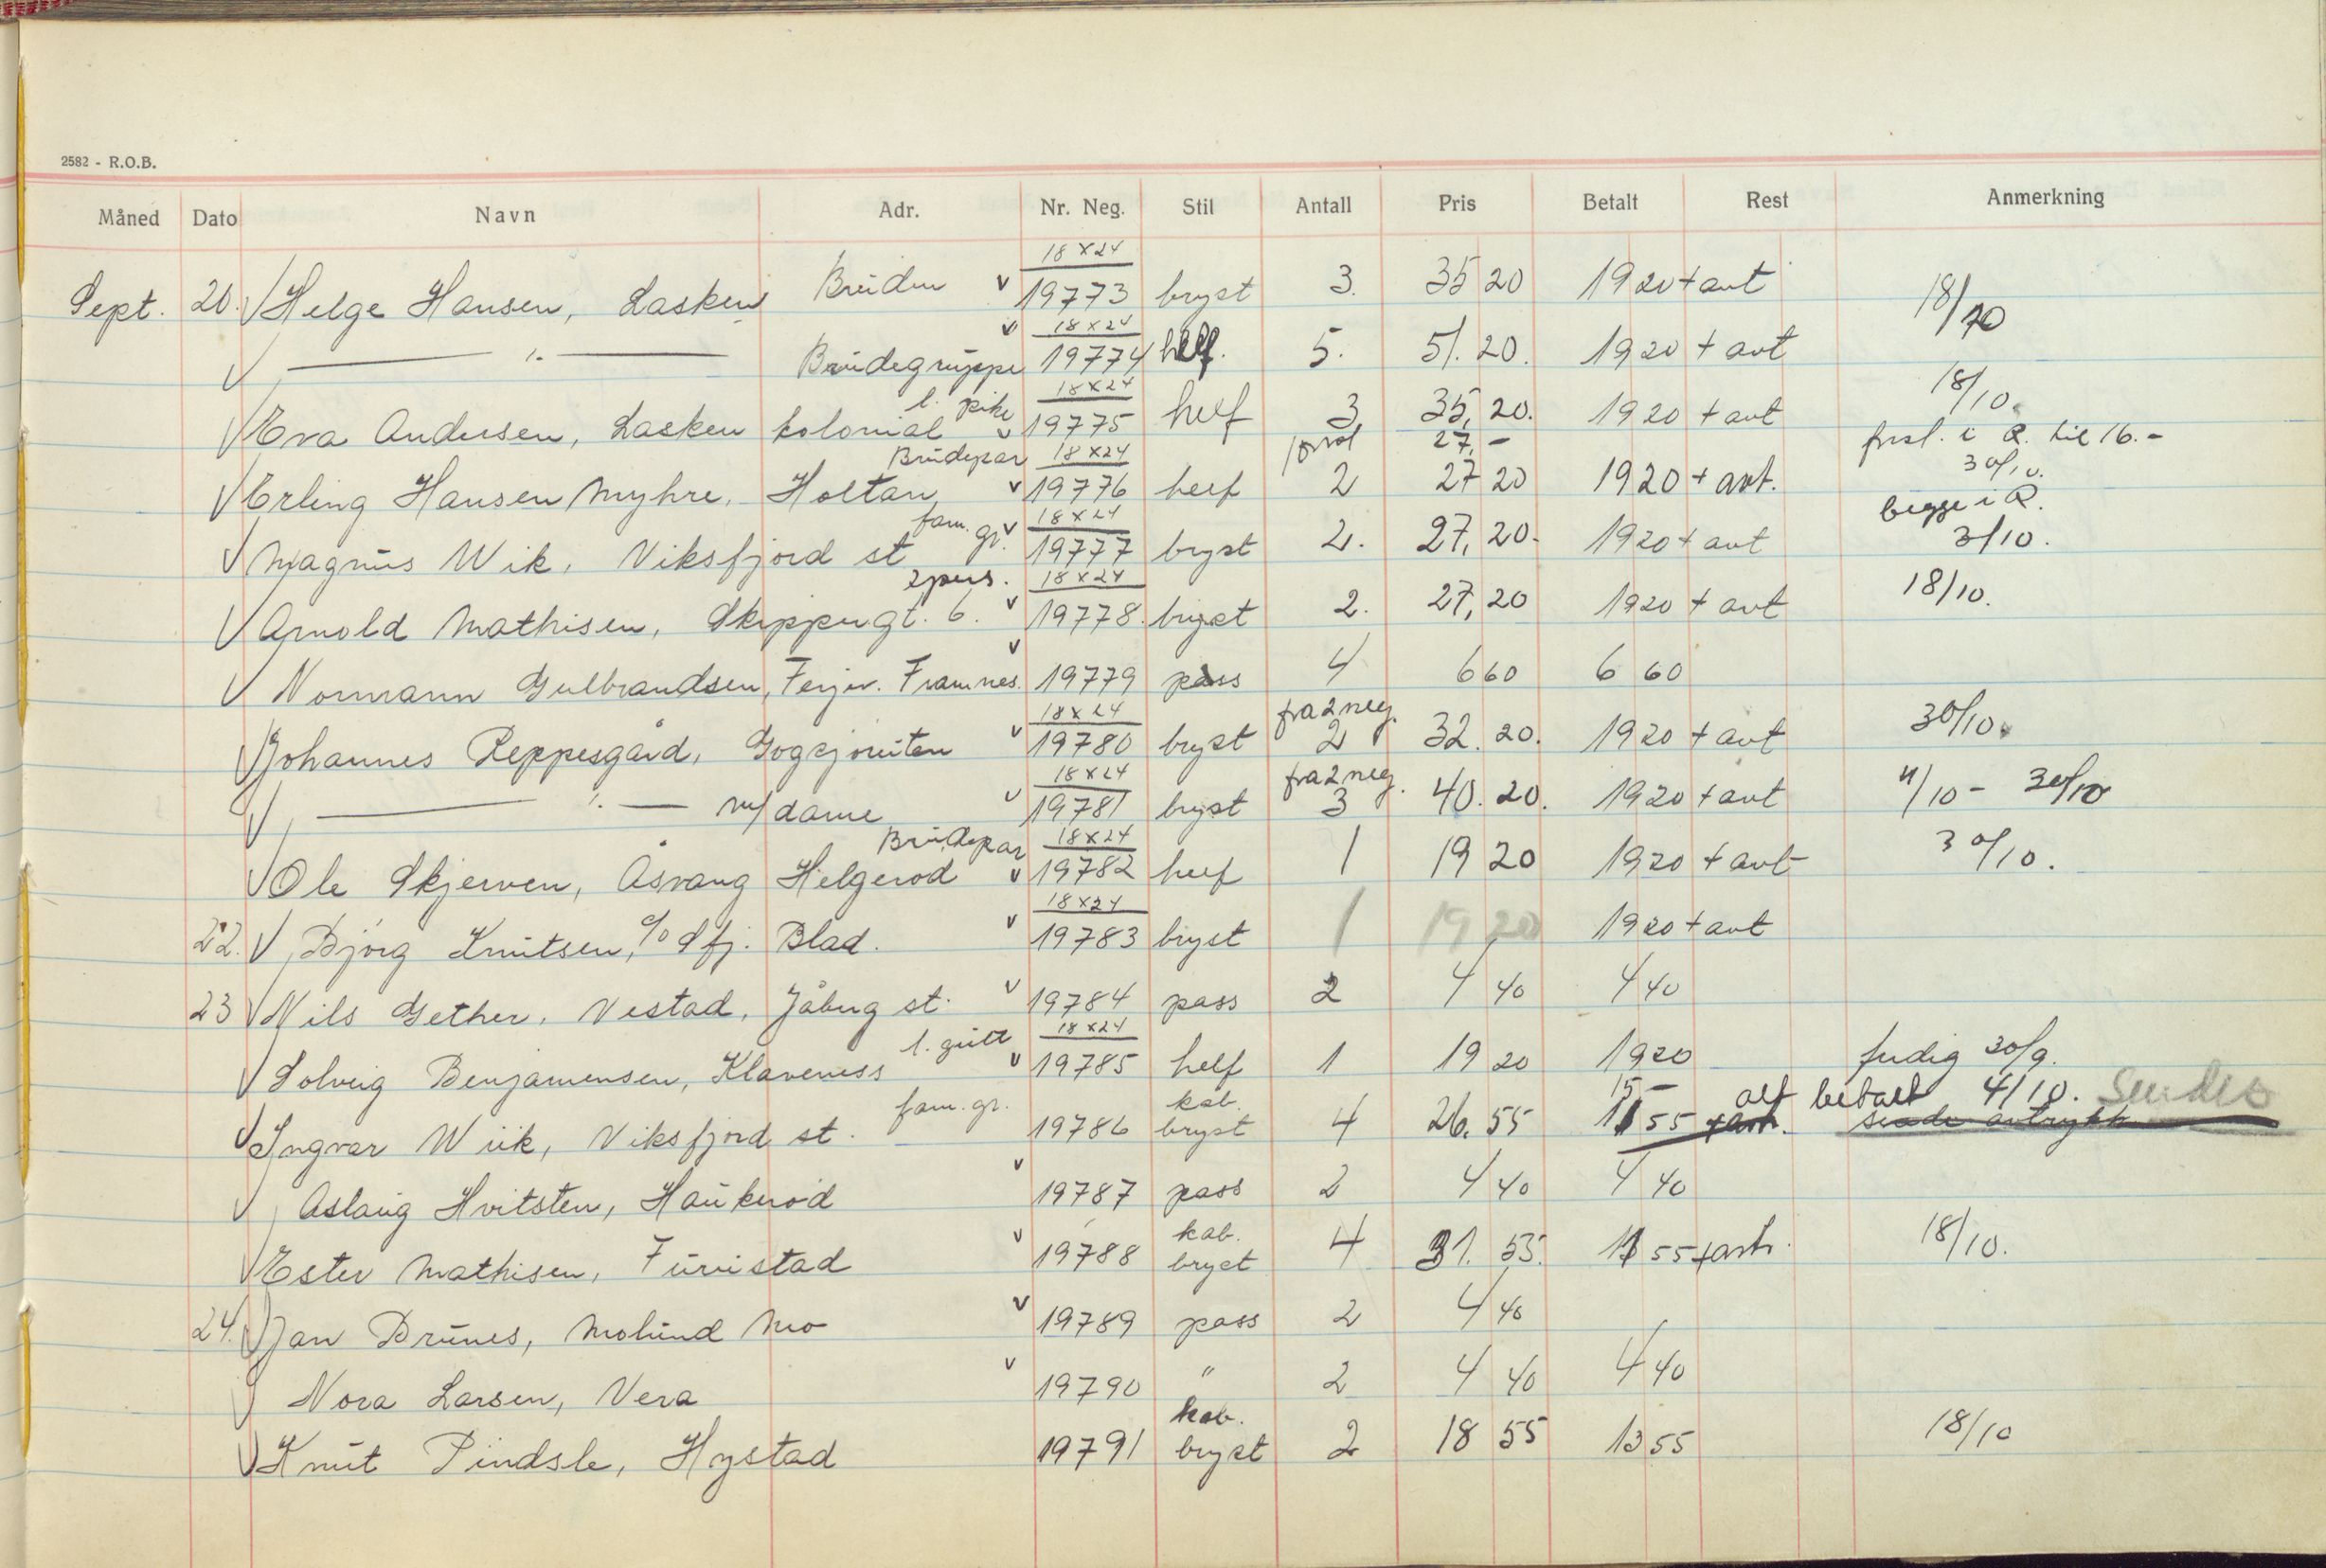 2582 - R.O.B.
Måned Dato Navn Adr. Nr. Neg. Stil Antall Pris Betalt Rest Anmerkning
18x24
Sept. 20. Helge Hansen, Lasken Bruden v 19773 bryst 3. 35 20 19 20 + avt 18/10
v 18x24
Brudegruppe 19774 helf. 5. 51. 20. 19 20 + avt
l. pike 18x24 18/10.
Eva Andersen, Lasken kolonial v 19775 helf 3 35, 20. 19 20 + avt
Brudepar 18x24 27,- forst. i R. til 16.-
30/10.
Erling Hansen Myhre, Holtan v 19776 helf 2 27 20 19 20 + avt.
fam. gr. v 18x24 begge i R.
Magnus Wik, Viksfjord st 19777 bryst 2. 27, 20. 19 20 + avt 3/10.
2 pers. 18x24
Arnold Mathisen, Skippergt. 6. v 19778. bryst 2. 27, 20 19 20 + avt 18/10.
v
Normann Gulbrandsen, Ferjev. Framnes. 19779 pass 4 6 60 6 60
18x24 fra 2 neg.
Johannes Reppesgård, Gogsjoruten v 19780 bryst 2 32. 20. 19 20 + avt 30/10.
18x24 fra 2 neg.
m/dame v 19781 bryst 3 40. 20. 19 20 + avt 4/10 - 30/10
Brudepar 18x24
Ole Skjerven, Åsvang Helgerod v 19782 helf 1 19 20 19 20 + avt 30/10.
18x24
22. Bjørg Knutsen, c/o Sfj. Blad. v 19783 bryst 1 19 20 19 20 + avt
23 Nils Gether, Vestad, Jåberg st. v 19784 pass 2 4 40 4 40
l. gutt 18x24
Solveig Benjamensen, Klaveness v 19785 helf 1 19 20 19 20 ferdig 30/9.
fam. gr. kab. 15- alt betalt 4/10. Sendes
Ingvar Wiik, Viksfjord st. 19786 bryst 4 26. 55 11 55 + avtr. sende avtrykk
v
Aslaug Hvitsten, Haukerød 19787 pass 2 4 40 4 40
v kab.
Ester Mathisen, Furustad 19788 bryst 4 31. 55. 11 55 + avtr. 18/10.
24. Jan Brunes, Molund Mo v 19789 pass 2 4 40
Nora Larsen, Vera v 19790 " 2 4 40 4 40
kab.
Knut Pindsle, Hystad 19791 bryst 2 18 55 13 55 18/10